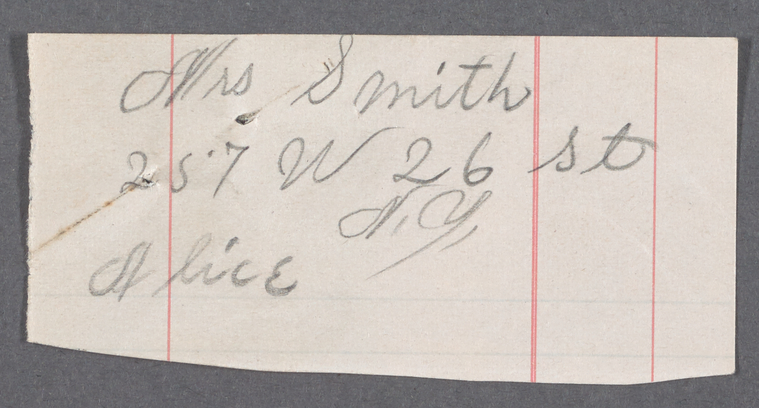 Mrs Smith
257 W 26 st
N.Y.
Alice